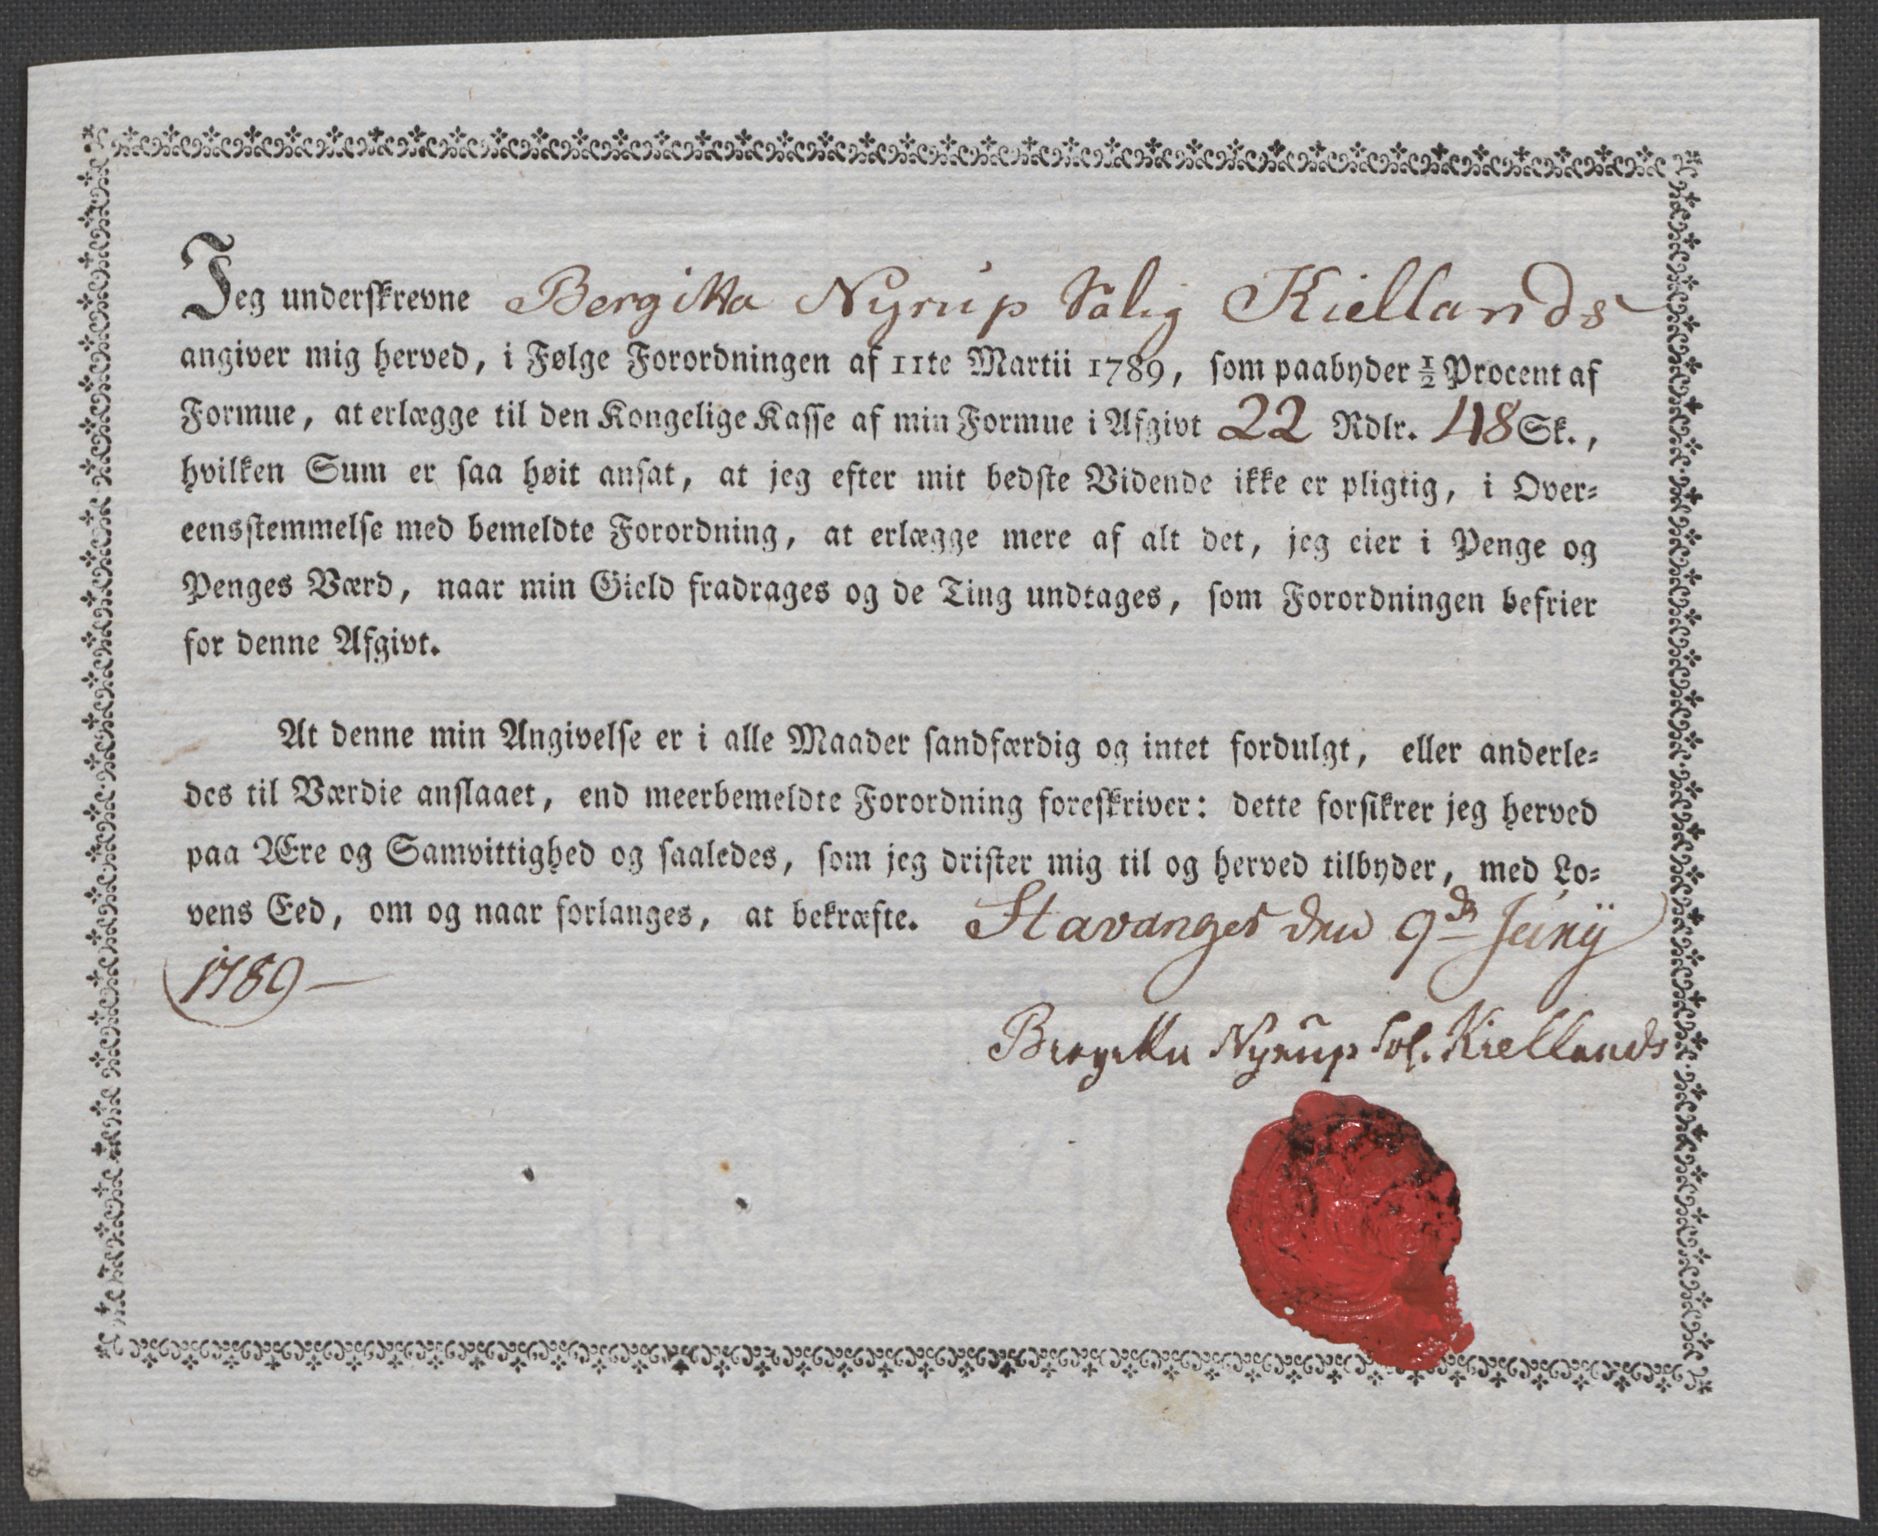 Jeg underskrevne Bergitta Nyrup Salig Kiellands
angiver mig herved, i Følge Forordningen af 11te Martii 1789, som paabyder ½ Procent af
Formue, at erlægge til den Kongelige Kasse af min Formue i Afgivt 22 Rdlr. 48 Sk.,
hvilken Sum er saa høit ansat, at jeg efter mit bedste Vidende ikke er pligtig, i Over-
eensstemmelse med bemeldte Forordning, at erlægge mere af alt det, jeg eier i Penge og
Penges Værd, naar min Gield fradrages og de Ting undtages, som Forordningen befrier
for denne Afgivt.
At denne min Angivelse er i alle Maader sandfærdig og intet fordulgt, eller anderle-
des til Værdie anslaaet, end meerbemeldte Forordning foreskriver: dette forsikrer jeg herved
paa Ære og Samvittighed og saaledes, som jeg drister mig til og herved tilbyder, med Lo-
vens Eed, om og naar forlanges, at bekræfte. Stavanger den 9de Junÿ
1789
Bergitta Nyrup Sol. Kiellands